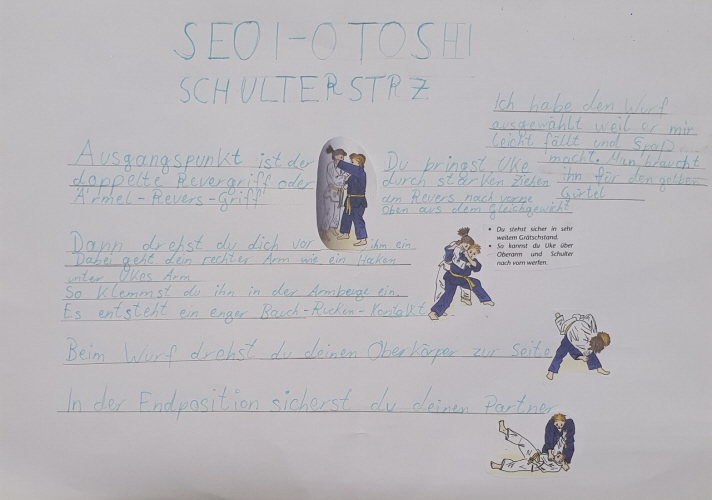 SEOI-OTOSHI
SCHULTERSTRZ
Ich habe den Wurf
ausgewählt weil er mir
leicht fällt und Spaß
macht. Man braucht
ihn für den gelben
Gürtel
Ausgangspunkt ist der
doppelte Revergriff oder
Ärmel-Revers-Griff
Du bringst Uke
durch starken ziehen
am Revers nach vorne
oben aus dem Gleichgewicht
Dann drehst du dich vor ihm ein.
Dabei geht dein rechter Arm wie ein Haken
unter Ukes Arm
So klemmst du ihn in der Armbeuge ein.
Es entsteht ein enger Bauch-Rücken-Kontakt
• Du stehst sicher in sehr
weitem Grätschstand.
• So kannst du Uke über
Oberarm und Schulter
nach vorn werfen.
Beim Wurf drehst du deinen Oberkörper zur Seite
In der Endposition sicherst du deinen Partner